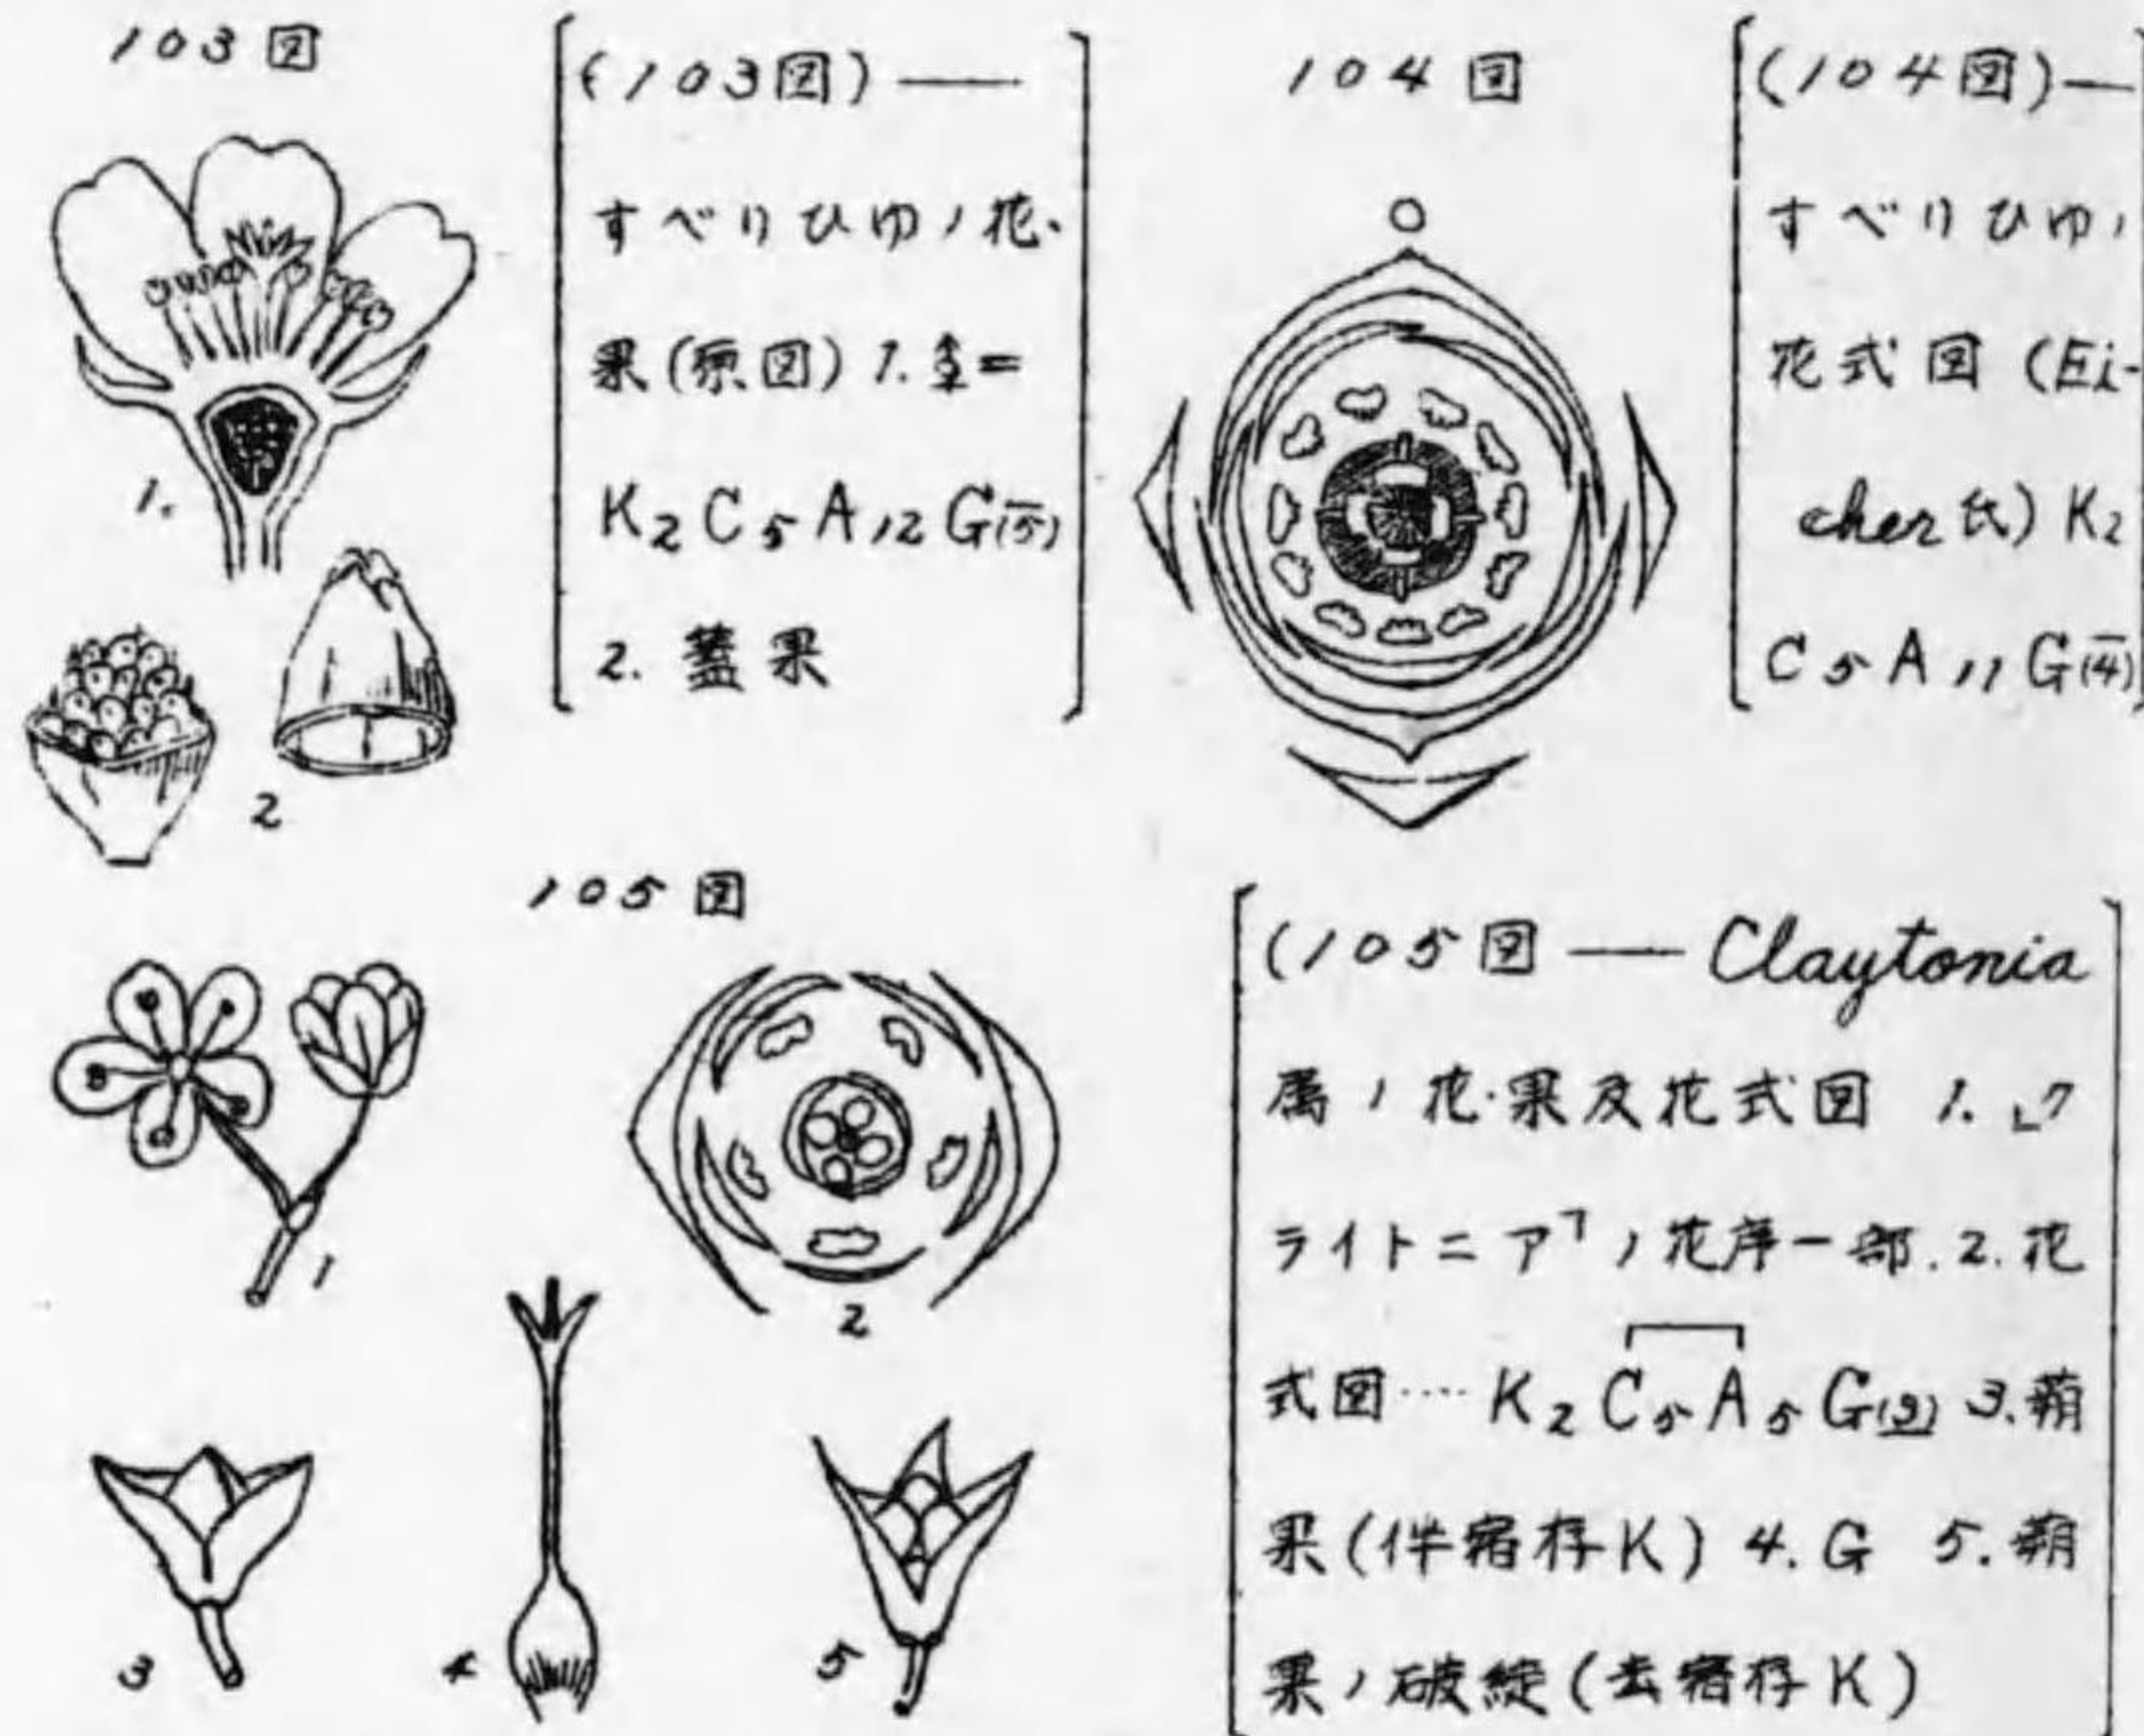 103図
(103図)——
すべりひゆノ花、
果(原図) 1. ⚥=
K2 C5 A12 G(5̅)
2. 蓋果
1.
2
104図
(104図)—
すべりひゆノ
花式図 (Ei-
cher氏) K2
C5 A11 G(4̅)
105図
1
2
3
4
5
(105図 — Claytonia
属ノ花・果及花式図 1.「ク
ライトニア」ノ花序一部. 2. 花
式図‥‥ K2 C5 A5 G(3̲) 3. 蒴
果(伴宿存K) 4. G 5. 蒴
果ノ破綻(去宿存K)